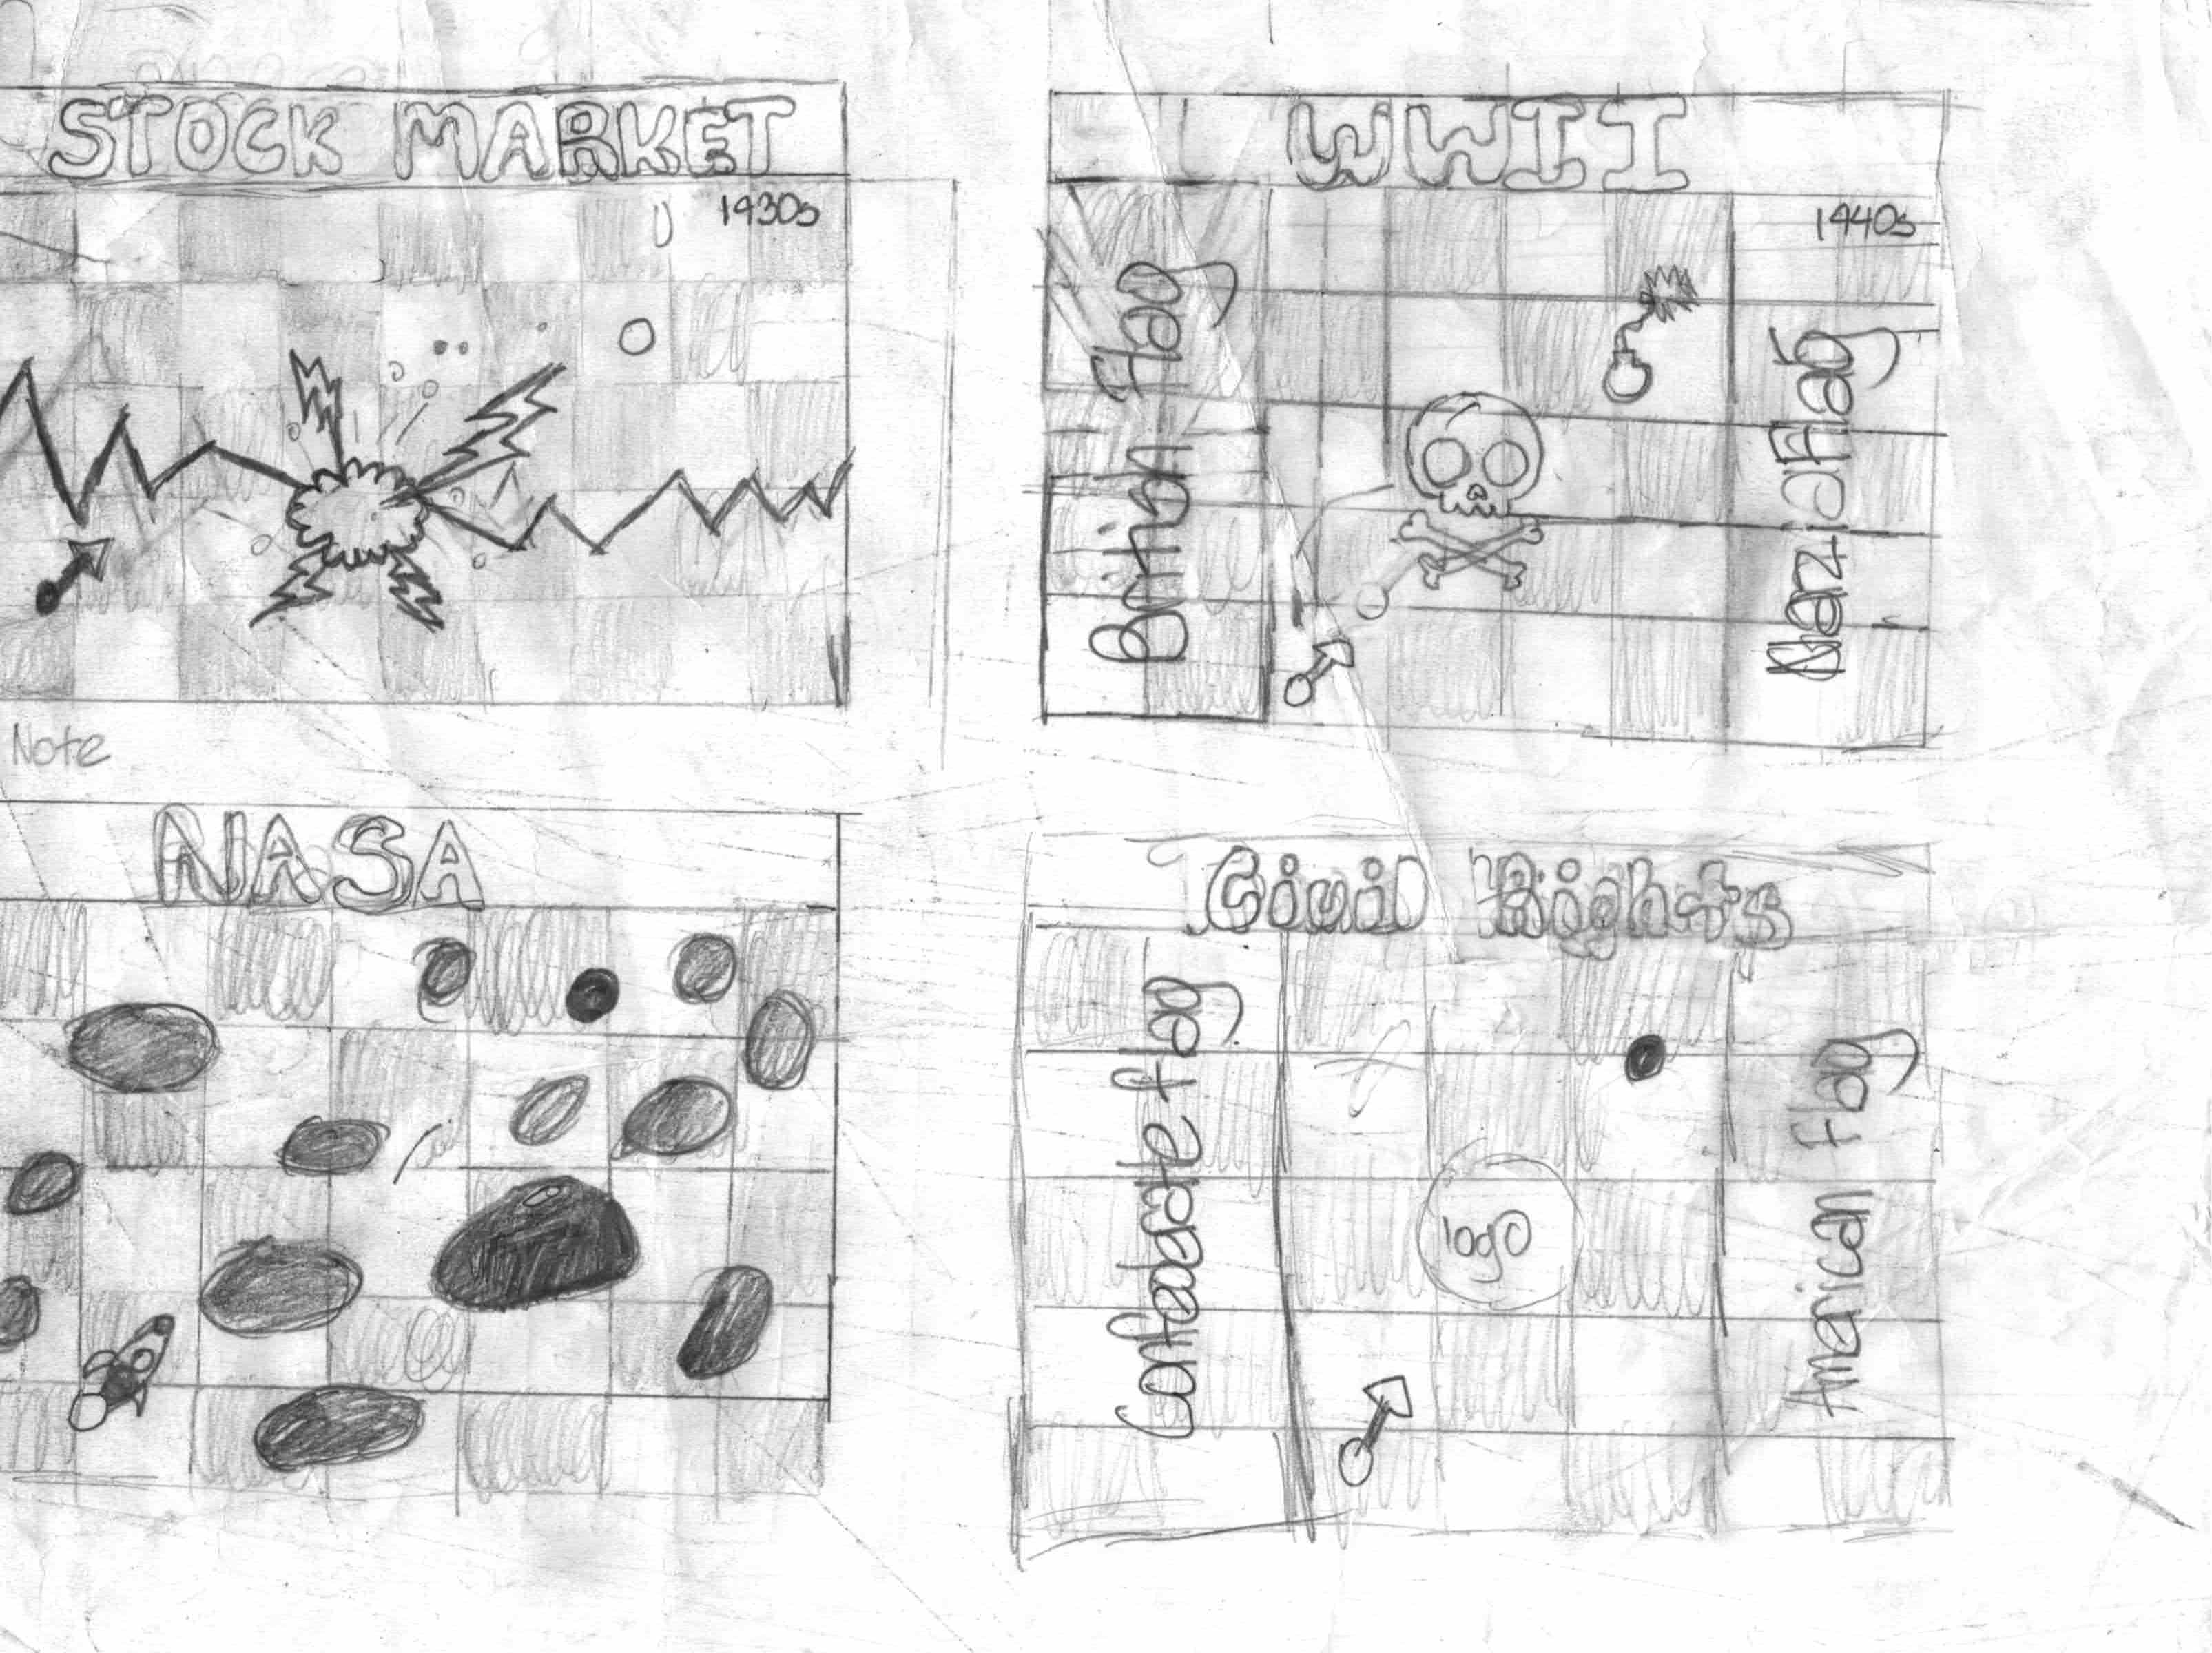 STOCK MARKET
1930s
WWII
1940s
British Flag
Flag
Note
NASA
Civil Rights
Confederate flag
logo
American Flag